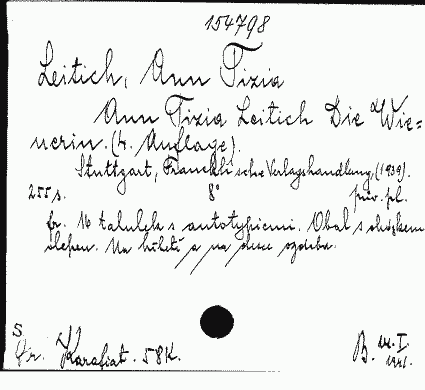 154798
Leitich, Ann Tizia
Ann Tizia Leitich Die Wie=
nerin. (4. Auflage).
Stuttgart, Franckh'sche Verlagshandlung, (1939).
255 s. 8° pův. pl.
fr. 16 tabulek s autotypiemi. Obal s obrázkem
slepen. Na hřbetě a na desce ozdoba.
S
Dr. Karafiat. 58K.
B. I.
1941.